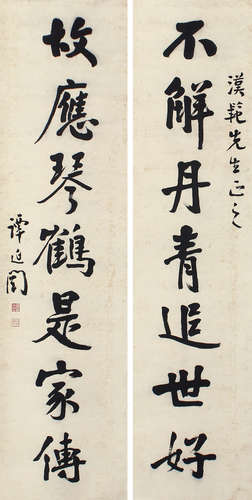 漢髡先生正之
不解丹青追世好
故應琴鶴是家傳
譚延闓